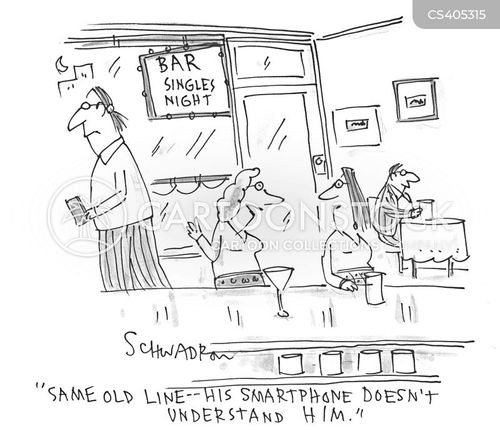 CS405315
BAR
SINGLES
NIGHT
CARTOONSTOCK
CARTOON COLLECTIONS
SCHWADRON
"SAME OLD LINE--HIS SMARTPHONE DOESN'T
UNDERSTAND HIM."